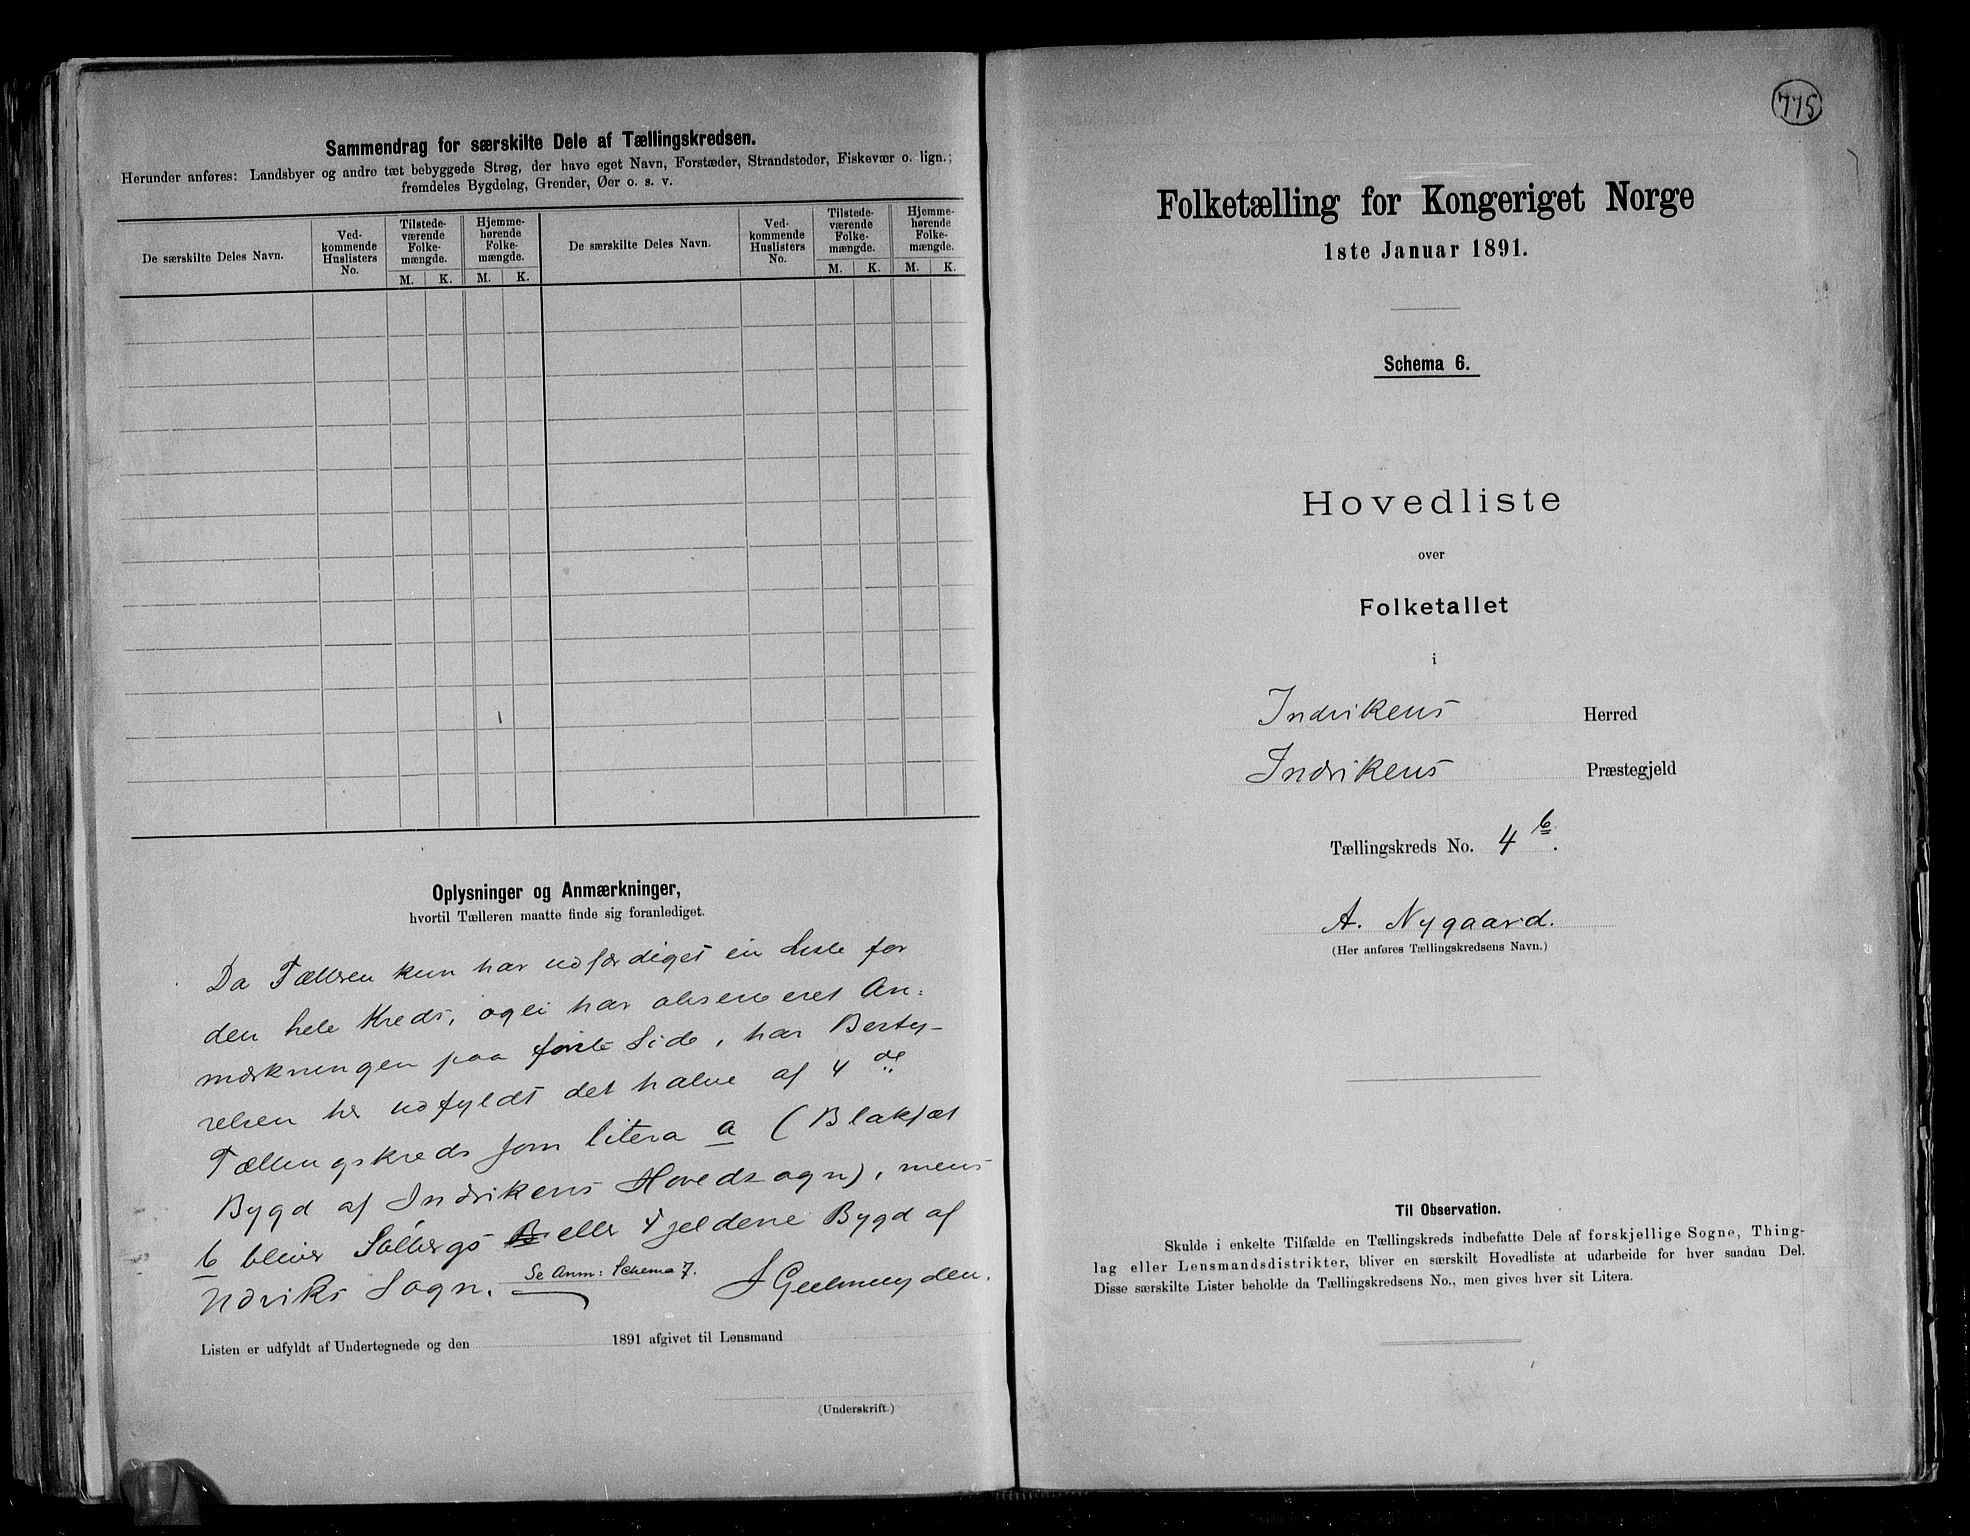 Sammendrag for særskilte Dele af Tællingskredsen.
Herunder anføres: Landsbyer og andre tæt bebyggede Strøg, der have eget Navn, Forstæder, Strandsteder, Fiskevær o. lign.;
fremdeles Bygdelag, Grender, Øer o. s. v.
De særskilte Deles Navn.
Ved-
kommende
Huslisters
No.
Tilstede-
værende
Folke-
mængde.
M. K.
Hjemme-
hørende
Folke-
mængde.
M. K.
De særskilte Deles Navn.
Ved-
kommende
Huslisters
No.
Tilstede-
værende
Folke-
mængde.
M. K.
Hjemme-
hørende
Folke-
mængde.
M. K.
Oplysninger og Anmærkninger,
hvortil Tælleren maatte finde sig foranlediget.
Da Tælleren kun har udfærdiget en Liste for
den hele Kreds, og ei har observeret An-
mærkningen paa første Side, har Besty-
relsen her udfyldt det halve af 4 de
Tællingskreds som litera a (Blakjæt
Bygd af Indvikens Hovedsogn), mens
b bliver Solbergs eller Fjeldene Bygd af
Udviks Sogn. Se Anm: Schema 7.
Listen er udfyldt af Undertegnede og den 1891 afgivet til Lensmand
(Underskrift.)
775
Folketælling for Kongeriget Norge
1ste Januar 1891.
Schema 6.
Hovedliste
over
Folketallet
i
Indvikens Herred
Indvikens Præstegjeld
Tællingskreds No. 4 b.
A. Nygaard.
(Her anføres Tællingskredsens Navn.)
Til Observation.
Skulde i enkelte Tilfælde en Tællingskreds indbefatte Dele af forskjellige Sogne, Thing-
lag eller Lensmandsdistrikter, bliver en særskilt Hovedliste at udarbeide for hver saadan Del.
Disse særskilte Lister beholde da Tællingskredsens No., men gives hver sit Litera.